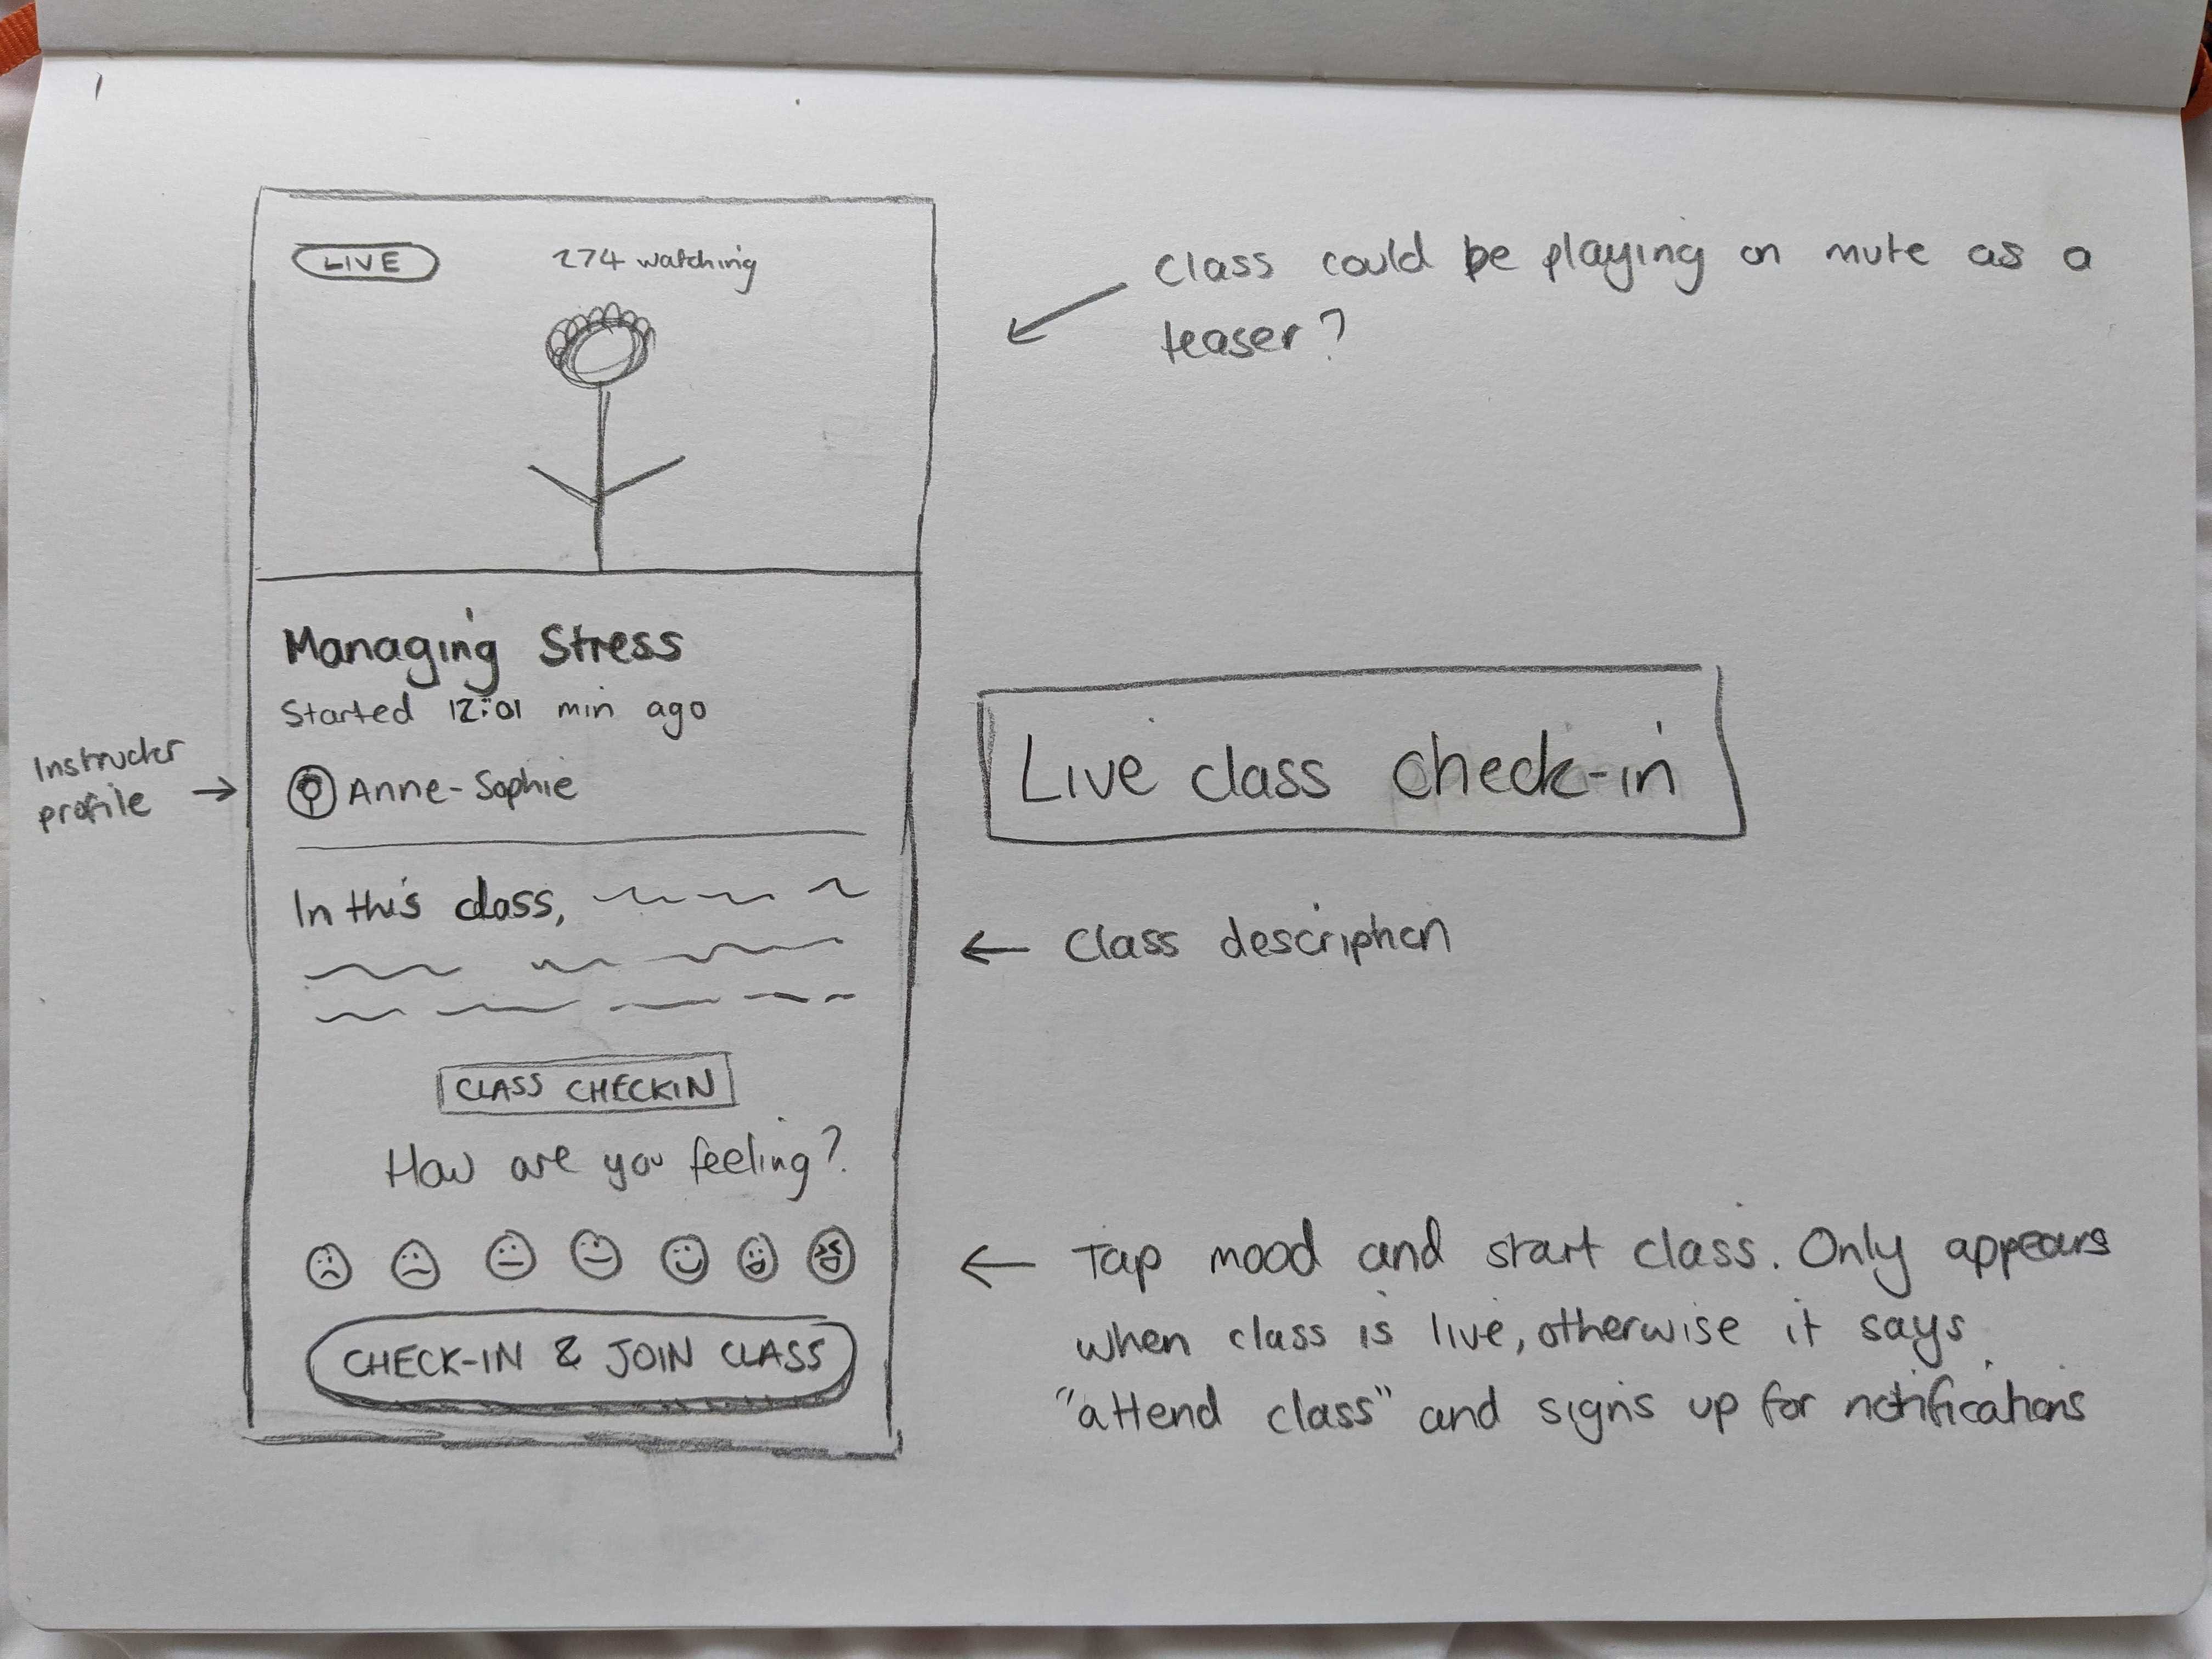 LIVE
274 watching
Class could be playing on mute as a
teaser?
Managing Stress
Started 12:01 min ago
Instructor
profile
Anne-Sophie
Live class check-in
In this class,
Class description
CLASS CHECKIN
How are you feeling?
Tap mood and start class. Only appears
when class is live, otherwise it says
"attend class" and signs up for notifications
CHECK-IN & JOIN CLASS